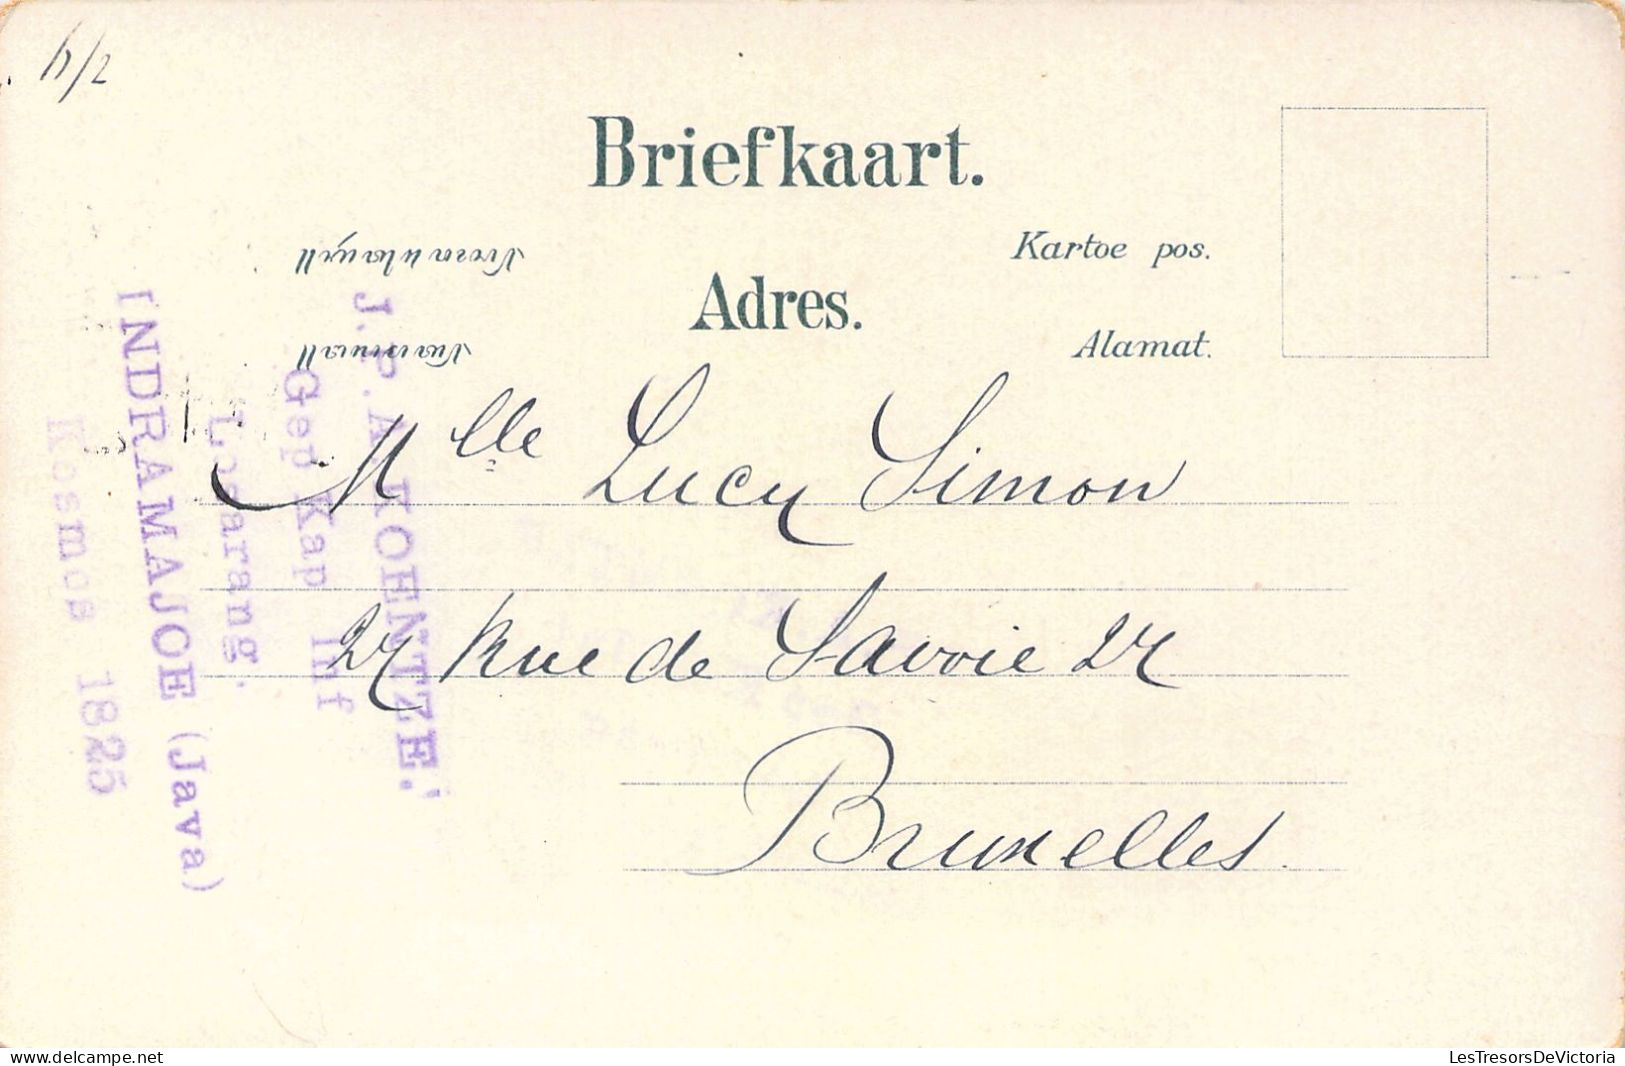 Briefkaart.
Kartoe pos.
Adres.
Alamat.
Mlle Lucy Simon
27 Rue de Savoie 27
Bruxelles.
J. P. A. KOENTZE.
Gep Kap Inf
Losarang.
INDRAMAJOE (Java)
Kosmos 1825
www.delcampe.net
LesTresorsDeVictoria